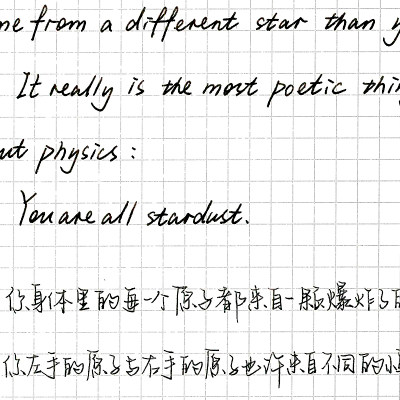 me from a different star than y
It really is the most poetic thi
ut physics:
You are all stardust.
你身体里的每一个原子都来自一颗爆炸了的
你左手的原子与右手的原子也许来自不同的